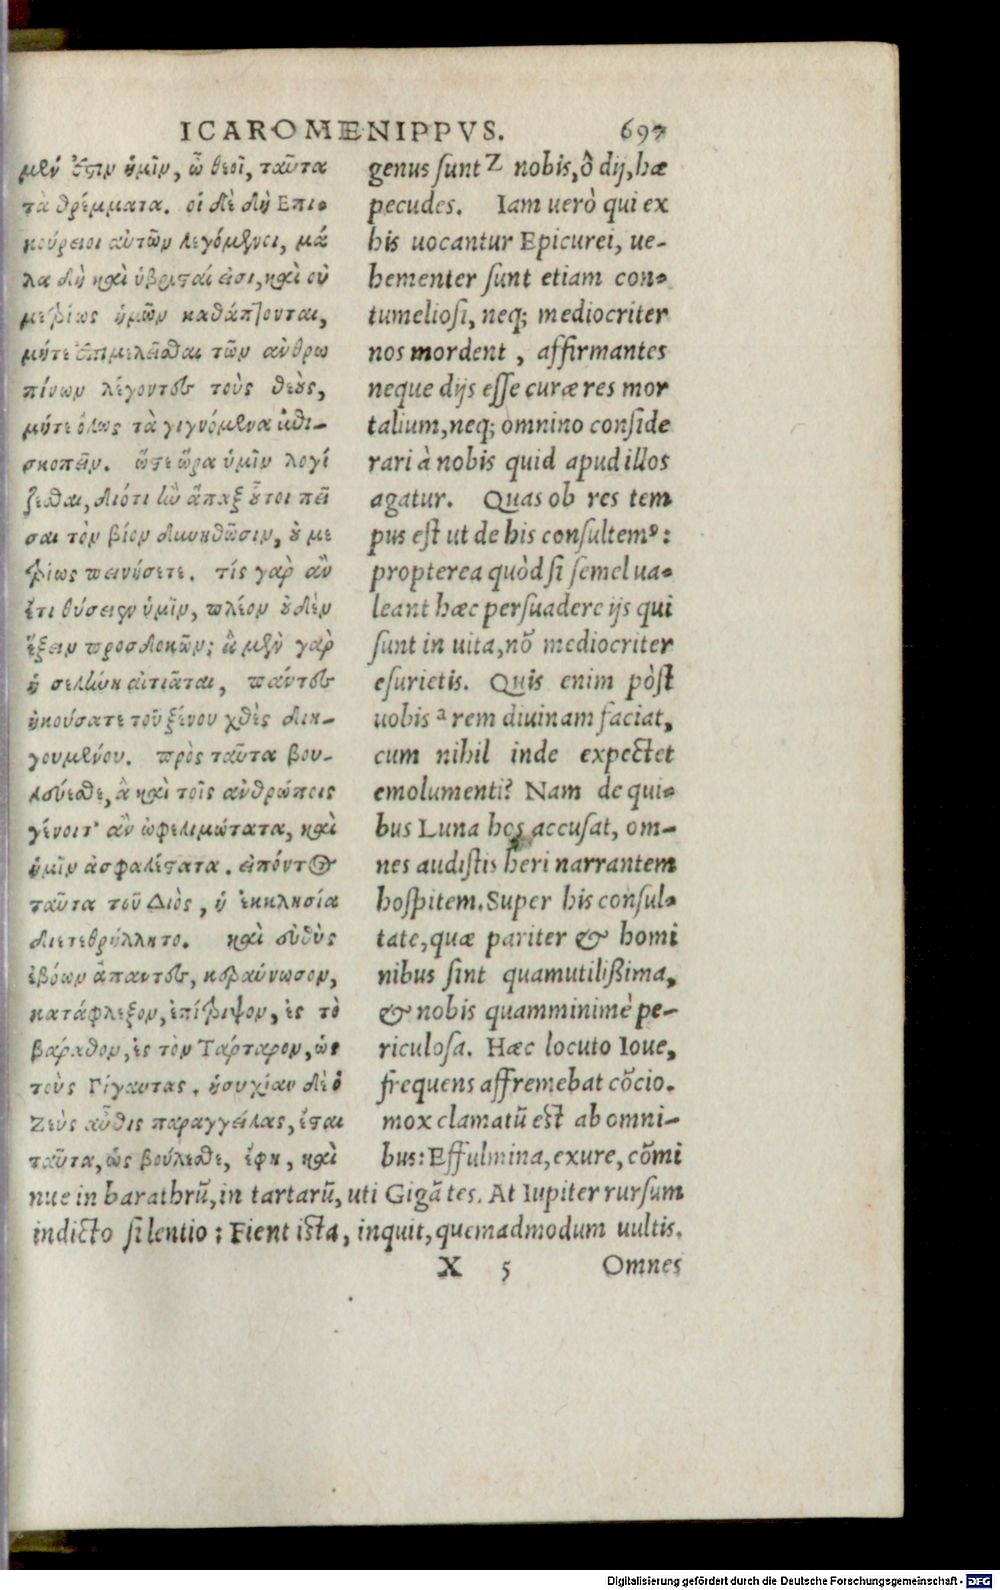 ICAROMENIPPVS. 697
μέν ἐστιν ὑμῖν, ὦ θεοῖ, ταῦτα
τὰ θρέμματα. οἱ δὲ δὴ Ἐπι-
κούρειοι αὐτῶν λεγόμενοι, μά
λα δὴ καὶ ὑβρισταί εἰσι, καὶ οὐ
μετρίως ἡμῶν καθάπτονται,
μήτε ἐπιμελεῖσθαι τῶν ἀνθρω
πίνων λέγοντες τοὺς θεοὺς,
μήτε ὅλως τὰ γιγνόμενα ἐπι-
σκοπεῖν. ὥστε ὥρα ὑμῖν λογί
ζεσθαι, διότι ἢν ἅπαξ οὗτοι πεῖ
σαι τὸν βίον δυνηθῶσιν, οὐ με
τρίως πεινήσετε. τίς γὰρ ἂν
ἔτι θύσειεν ὑμῖν, πλέον οὐδὲν
ἕξειν προσδοκῶν; ἃ μὲν γὰρ
ἡ σελήνη αἰτιᾶται, πάντες
ἠκούσατε τοῦ ξένου χθὲς διη-
γουμένου. πρὸς ταῦτα βου-
λεύεσθε, ἃ καὶ τοῖς ἀνθρώποις
γένοιτ' ἂν ὠφελιμώτατα, καὶ
ἡμῖν ἀσφαλέστατα. εἰπόντος
ταῦτα τοῦ Διὸς, ἡ ἐκκλησία
διετεθρύλλητο. καὶ εὐθὺς
ἐβόων ἅπαντες, κεραύνωσον,
κατάφλεξον, ἐπίτριψον, ἐς τὸ
βάραθρον, ἐς τὸν Τάρταρον, ὡς
τοὺς Γίγαντας. ἡσυχίαν δὲ ὁ
Ζεὺς αὖθις παραγγείλας, ἔσται
ταῦτα, ὡς βούλεσθε, ἔφη, καὶ
genus sunt z nobis, ô dij, hæ
pecudes. Iam uerò qui ex
his uocantur Epicurei, ue-
hementer sunt etiam con-
tumeliosi, neq; mediocriter
nos mordent, affirmantes
neque dijs esse curæ res mor
talium, neq; omnino conside
rari à nobis quid apud illos
agatur. Quas ob res tem
pus est ut de his consultemꝰ:
propterea quòd si semel ua-
leant hæc persuadere ijs qui
sunt in uita, nō mediocriter
esurietis. Quis enim pòst
uobis a rem diuinam faciat,
cum nihil inde expectet
emolumenti? Nam de qui-
bus Luna hos accusat, om-
nes audistis heri narrantem
hospitem. Super his consul-
tate, quæ pariter & homi
nibus sint quamutilißima,
& nobis quamminimè pe-
riculosa. Hæc locuto Ioue,
frequens affremebat cōcio.
mox clamatū est ab omni-
bus: Effulmina, exure, cōmi
nue in barathrū, in tartarū, uti Gigātes. At Iupiter rursum
indicto silentio: Fient ista, inquit, quemadmodum uultis.
X 5 Omnes
Digitalisierung gefördert durch die Deutsche Forschungsgemeinschaft - DFG